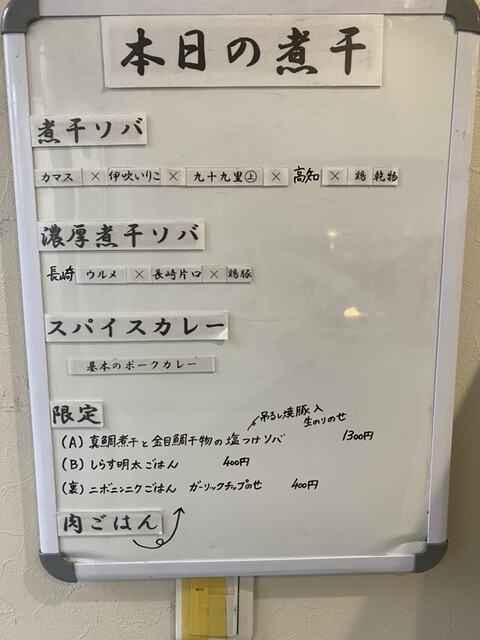 本日の煮干
煮干ソバ
カマス × 伊吹いりこ × 九十九里㊤ × 高知 × 鶏 乾物
濃厚煮干ソバ
長崎 ウルメ × 長崎片口 × 鶏豚
スパイスカレー
基本のポークカレー
限定
吊るし焼豚入
生のりのせ
(A) 真鯛煮干と金目鯛干物の塩つけソバ 1300円
(B) しらす明太ごはん 400円
(裏) ニボニンニクごはん ガーリックチップのせ 400円
肉ごはん